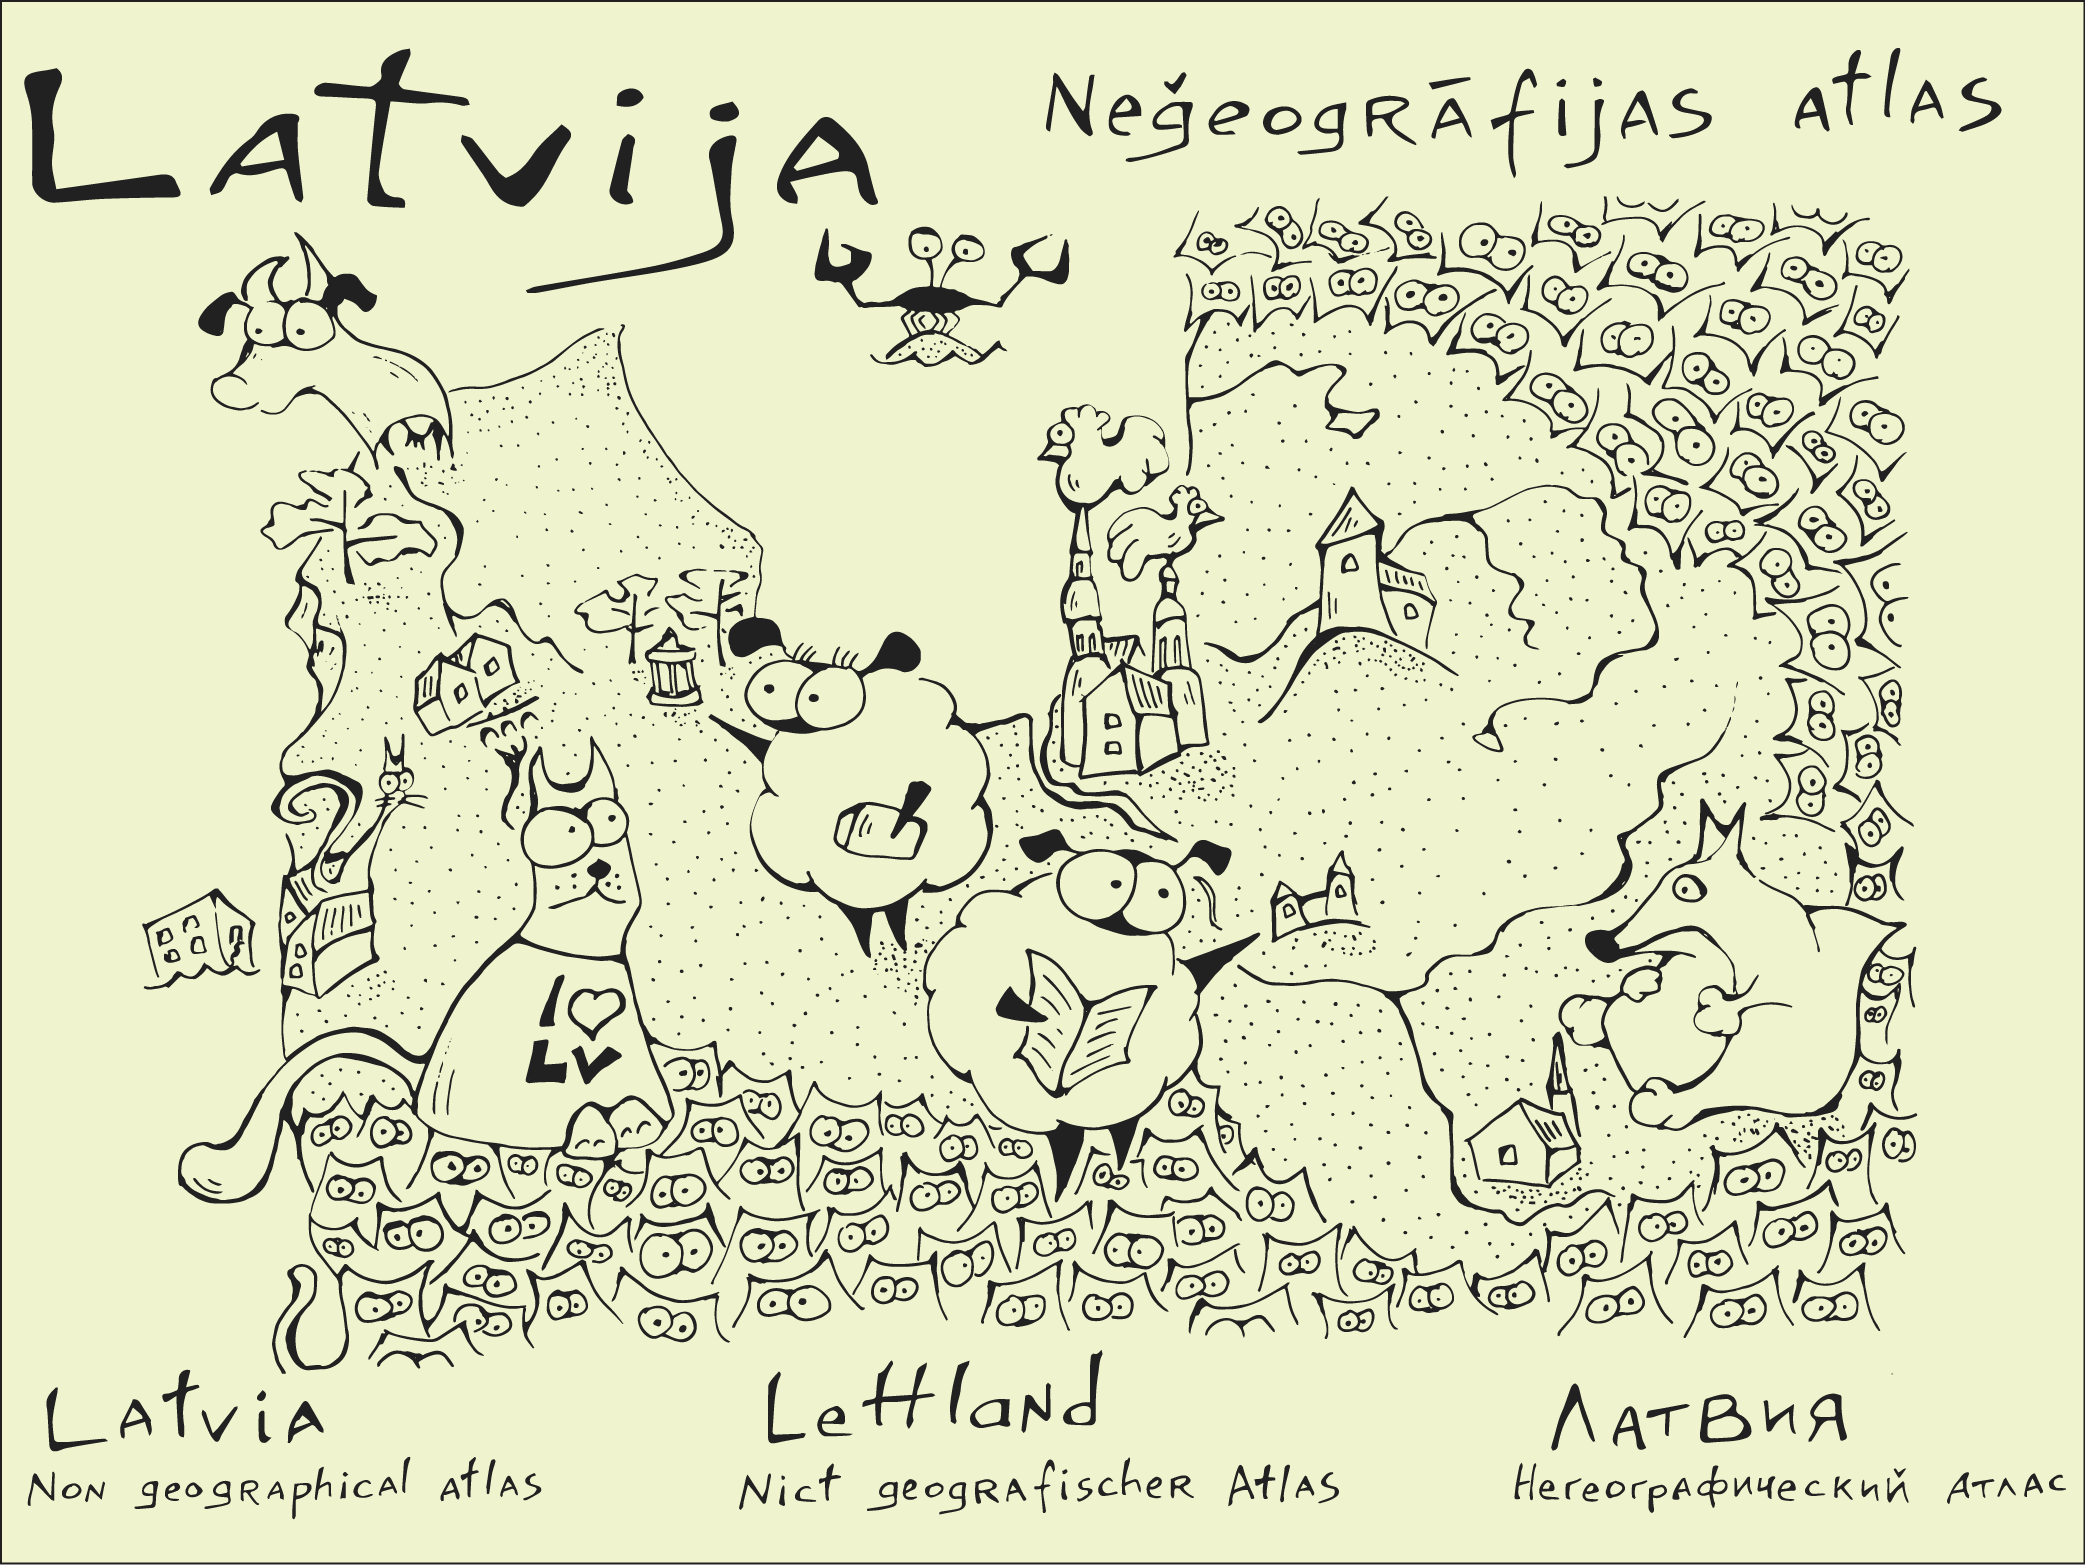 Latvija
Neģeogrāfijas atlas
I ♡
LV
Latvia
Non geographical atlas
Lettland
Nict geografischer Atlas
Латвия
Негеографический атлас